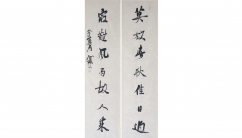 莫放春秋佳日過
最難風雨故人來